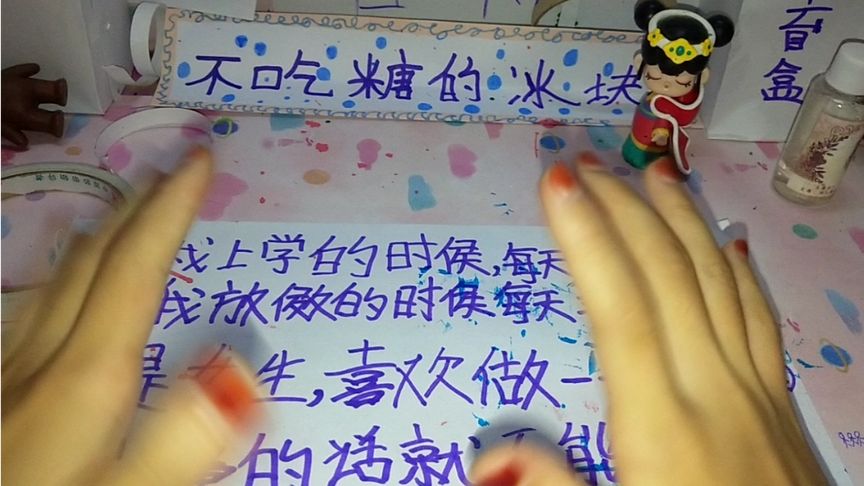 不吃糖的冰块
盲盒
我上学的时候,每天
我放假的时候每天
是女生,喜欢做一
的话就不能